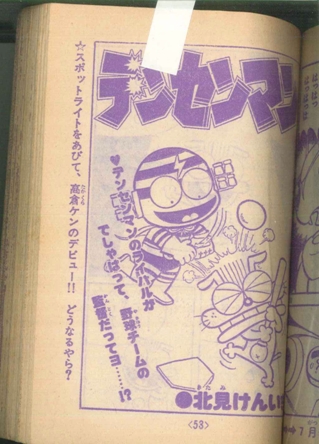 デンセンマン
☆スポットライトをあびて、高倉ケンのデビュー!! どうなるやら?
♥デンセンマンのライバルが
でしゃばって、野球チームの
監督だってヨ……!?
●北見けんい
きたみ
〈53〉